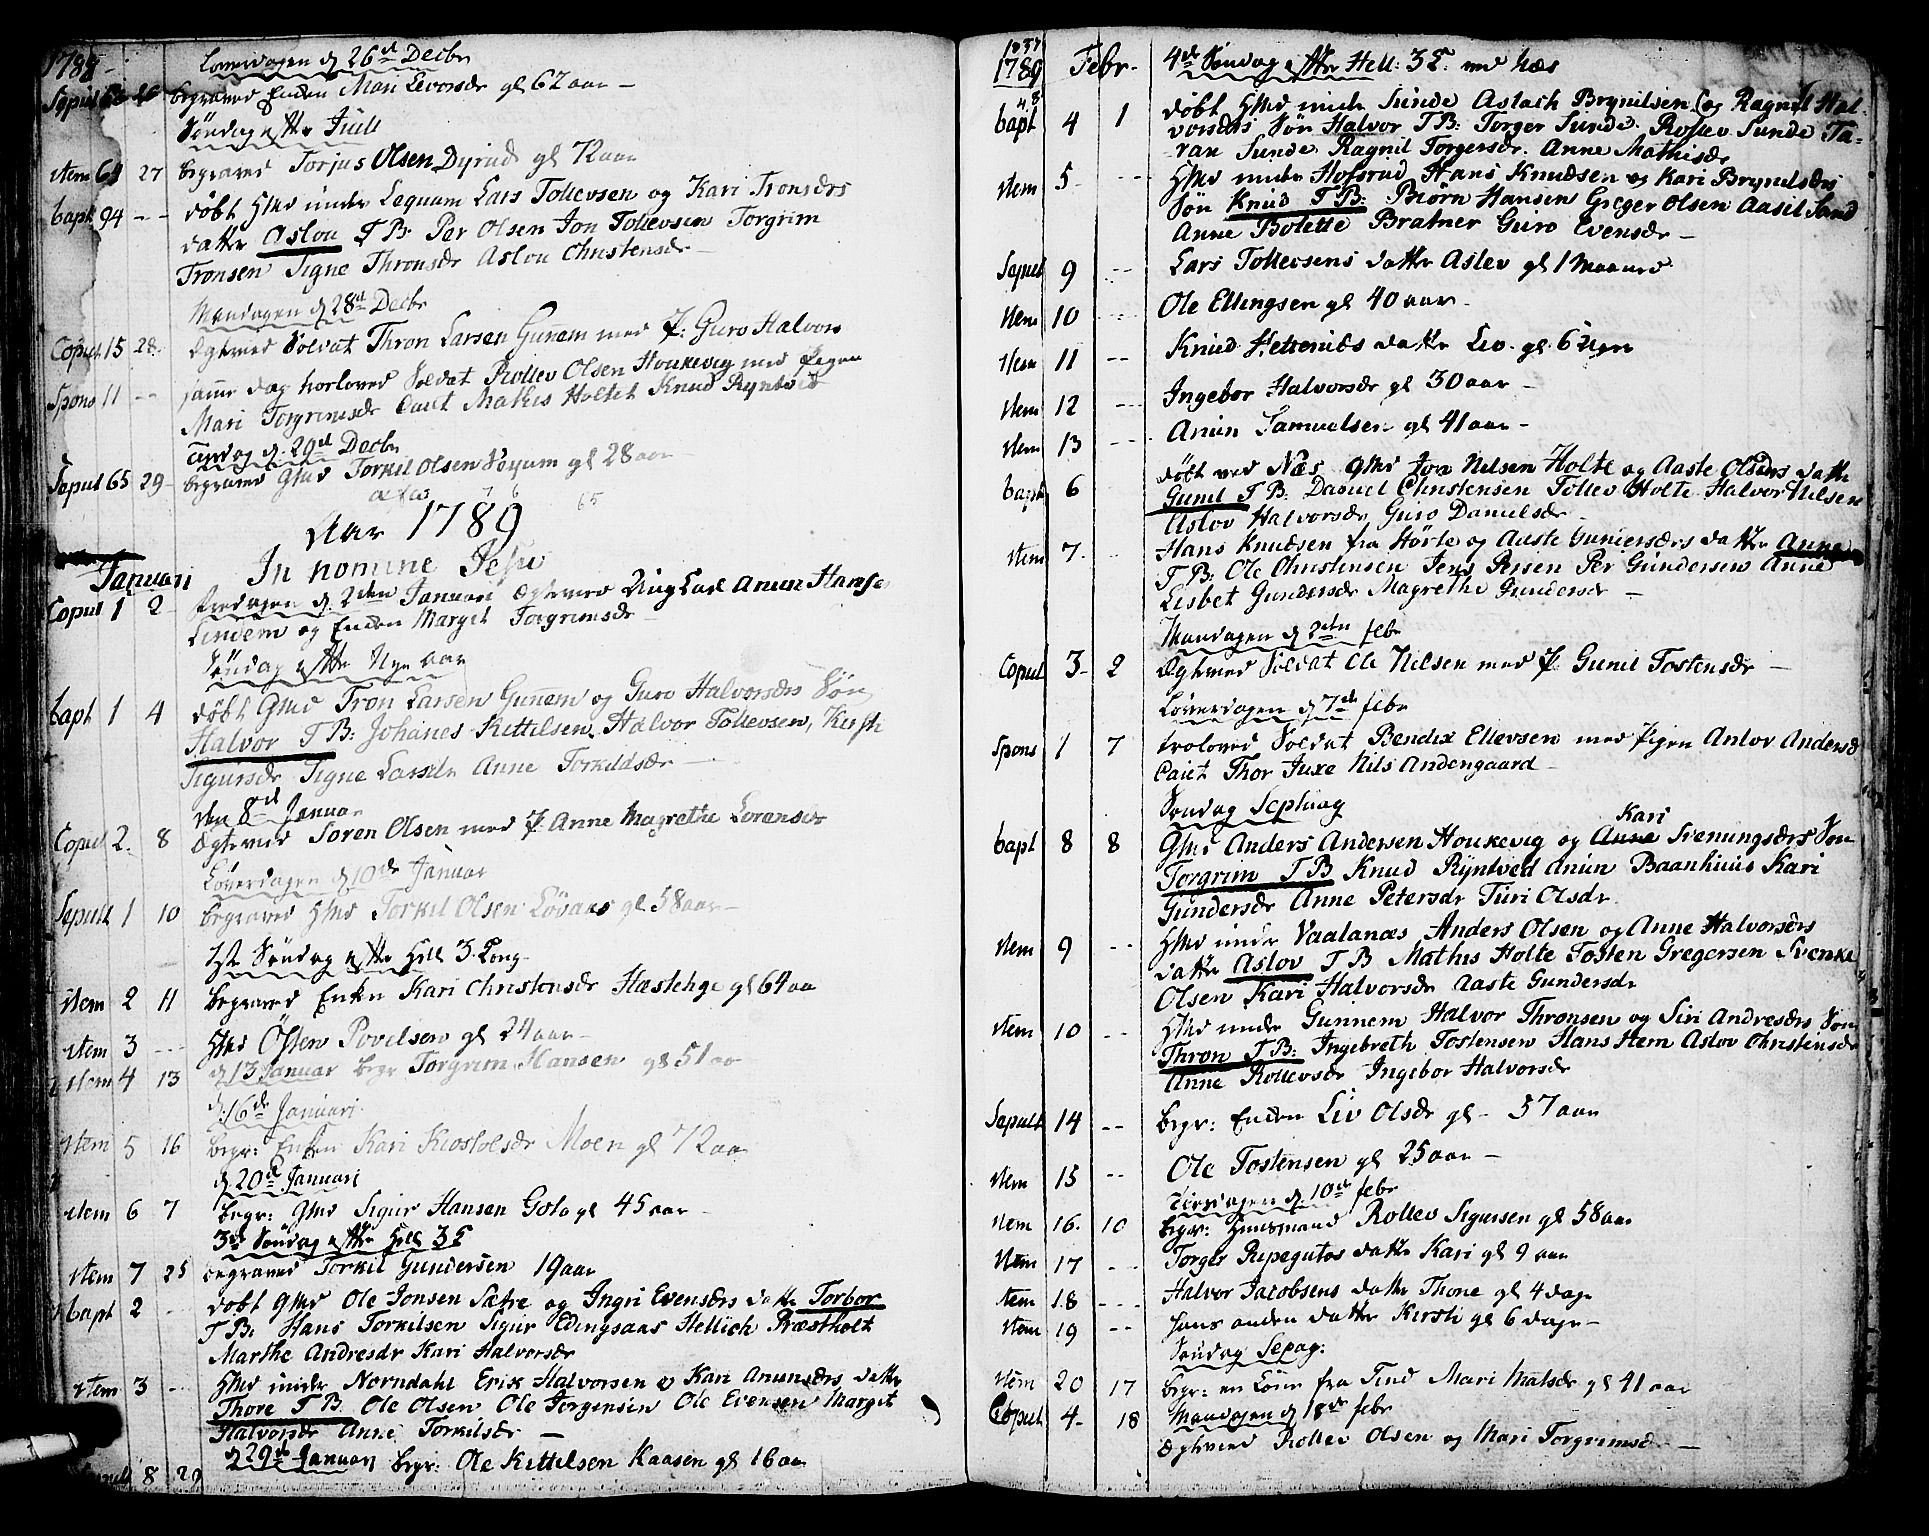 1788
Løverdagen d 26d Decbr
Sepult 63 26 begraved Enken Mari Levorsdr gl 62 aar
Søndag efter Juul
Item 64 27 begraved Torjus Olsen Dyrud gl 72 aar
bapt 94 -- døbt Hmd under Lequam Lars Tollevsen og Kari Tronsdrs
datter Aslou T B: Per Olsen Jon Tollevsen Torgrim
Tronsen Signe Thronsdr Aslou Christensdr
Mandagen d 28d Decbr
Copul 15 28 Egteviet Soldat Thron Larsen Gunem med P: Guro Halvors
Spons 11 -- samme dag Rollev Olsen Houkevig med Pigen
Mari Torgrimsdr Caut Mathis Holtet Knud Ryntved
Tirsdag d. 29d Decbr
Sepult 65 29 begraved Gmd Torkil Olsen gl 28 aar
76 65
Aar 1789
In nomine Jesu
Januari
Copul 1 2 Fredagen d. 2den Januari Egteviet Ung Carl Anun Hansen
Lindem og Enken Margit Torgrimsdr
Søndag efter Nye aar
bapt 1 4 døbt Gmd Tron Larsen Gunem og Guro Halvorsdrs Søn
Halvor T B: Johanes Kittilsen, Halvor Tollevsen, Kirsti
Sigursdr Signe Larsdr Anne Torkildsdr
den 8d Januar
Copul 2. 8 Egteviet Soren Olsen med P: Anne Magrethe Lorensdr
Løverdagen d 10de Januar
Sepult 1 10 begraved Hmd Torkil Olsen Løvaas gl 58 aar
1st Søndag efter Hell 3 Kong
Item 2 11 begraved Enken Kari Christensdr Hæstehge gl 64 aa
Item 3 -- Hmd Östen Povelsen gl 24 aar
Item 4 13 d 13 Januar begr Torgrim Hansen gl 51 aa
d: 16de Januari
Item 5 16 begr: Enken Kari Kiostolsdr Moen gl 72 aar
d. 20d Januari
Item 6 7 begr: Gmd Sigur Hansen Goto gl 45 aar
3d Søndag efter Hell 3 K
Item 7 25 begraved Torkil Gundersen 19 aar
bapt 2 - døbt Gmd Ole Jonsen Sætre og Ingri Evensdrs datter Torbor
T B: Hans Torkilsen Sigur Hellich Præstholt
Marthe Andresdr Kari Halvorsdr
Item 3 -- Hmd under Norndahl Erik Halvorsen og Kari Anunsdrs datter
Thore T B. Ole Olsen Ole Jorgensen Ole Evensen Margit
Halvorsdr Anne Torkilsdr
d 29d Januar begr: Ole Kittilsen Kaasen gl 16 aar
8 29
1789 Febr- 4de Søndag efter Hell: 3 K. ved Næs
bapt 4 1 døbt Hmd under Sunde Aslach Brynilsen og Ragnil Hal-
vorsdrs Søn Halvor T B: Torger Sunde. Rollev Sunde Ta-
ran Sunde Ragnil Torgersdr. Anne Mathisdr
Item 5 -- Hmd under Hofsrud Hans Knudsen og Kari Brynilsdrs
Søn Knud T B: Biørn Hansen Greger Olsen Aasil Sund
Anne Bolette Bratner Guro Evensdr
Sepult 9 -- Lars Tollevsens datter Aslev gl 1 maaned
Item 10 -- Ole Ellingsen gl 40 aar
Item 11 -- Knud datter Liv gl. 6 uger
Item 12 -- Ingebor Halvorsdr gl 30 aar
Item 13 -- Anun Samuelsen gl 41 aar
bapt 6 - døbt ved Næs Gmd Jon Nilsen Holte og Aaste Olsdrs datter
Gunil T B: Daniel Christensen Tollev Holte Halvor Nilsen
Aslov Halvorsdr Guro Danielsdr
Item 7. -- Hans Knudsen fra Hörte og Aaste Gundersdrs datter Anne
T B: Ole Christensen Jens Persen Per Gundersen Anne
Lisbet Gundersdr Magrethe Gundersdr
Mandagen d 2den febr
Copul 3 2 Egteviet Soldat Ole Nilsen med P Gunil Tostensdr
Løverdagen d 7de febr
Spons 1 7 troloved Soldat Bendix Ellevsen med Pigen Anlov Andersdr
Caut Thor Juxe Nils Andengaard
Søndag Septuag
bapt 8 8 Gmd Anders Andersen Houkevig og Anne Kari Svenungsdrs Søn
Torgrim T B Knud Ryntved Anun Baanhuus Kari
Gundersdr Anne Petersdr Turi Olsdr
Item 9 -- Hmd under Vaalanæs Anders Olsen og Anne Halvorsdrs
datter Aslov T B Mathis Holte Tosten Gregersen Svenke
Olsen Kari Halvorsdr Aaste Gundersdr
Item 10 -- Hmd under Gunnem Halvor Thronsen og Siri Andresdrs Søn
Thron T B: Ingebreth Tostensen Hans Hem Aslov Christensdr
Anne Rollevsdr Ingebor Halvorsdr
Sepult 14 -- begr: Enken Liv Olsdr gl 37 aar
Item 15 -- Ole Tostensen gl 25 aar
Tirsdagen d. 10d febr
Item 16. 10 begr: Huusmand Rollev Sigursen gl 58 aar
Item 17 -- Torger datter Kari gl 9 aar
Item 18 --- Halvor Jacobsens datter Thone gl 4 dage
Item 19 -- Hans anden datter Kirsti gl 6 dage
Søndag Sexag:
Item 20 17 begr: en fra Tind Mari Matsdr gl 41 aar
Mandagen d 18de febr
Copul 4 18 Egteviet Rollev Olsen og Mari Torgrimsdr